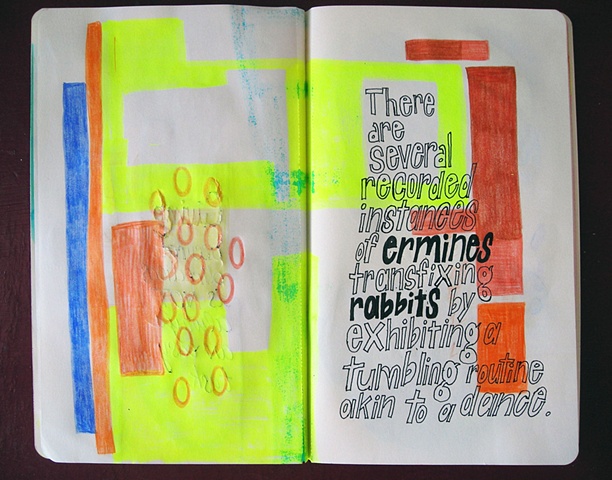 There
are
several
recorded
instances
of ermines
transfixing
rabbits by
exhibiting a
tumbling routine
akin to a dance.